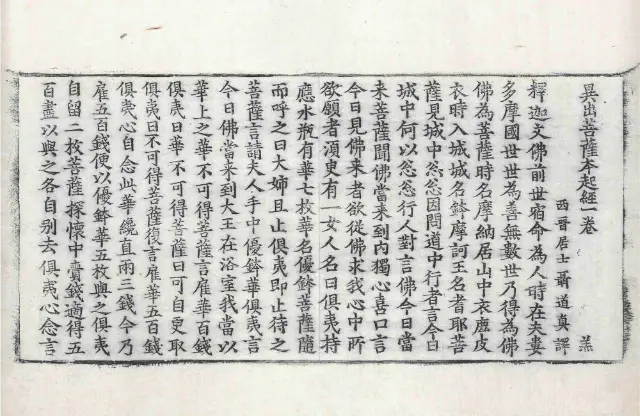 異出菩薩本起經一卷
西晉居士聶道真譯 羔
釋迦文佛前世宿命為人時在夫婁
多摩國世世為善無數世乃得為佛
佛為菩薩時名摩納居山中衣鹿皮
衣時入城城名鉢摩訶王名者耶菩
薩見城中怱怱因問道中行者言今日
城中何以怱怱行人對言佛今日當
來菩薩聞佛當來到內獨心喜口言
今日見佛來者欲從佛求我心中所
欲願者須臾有一女人名曰俱夷持
應水瓶有華七枚華名優鉢菩薩隨
而呼之曰大姉且止俱夷即止待之
菩薩言請夫人手中優鉢華俱夷言
今日佛當來到大王在浴室我當以
華上之華不可得菩薩言雇華百錢
俱夷曰華不可得菩薩曰可自更取
俱夷曰不可得菩薩復言雇華五百錢
俱夷心自念此華纔直兩三錢今乃
雇五百錢便以優鉢華五枚與之俱夷
自留二枚菩薩探懷中賷錢適得五
百盡以與之各自別去俱夷心念言